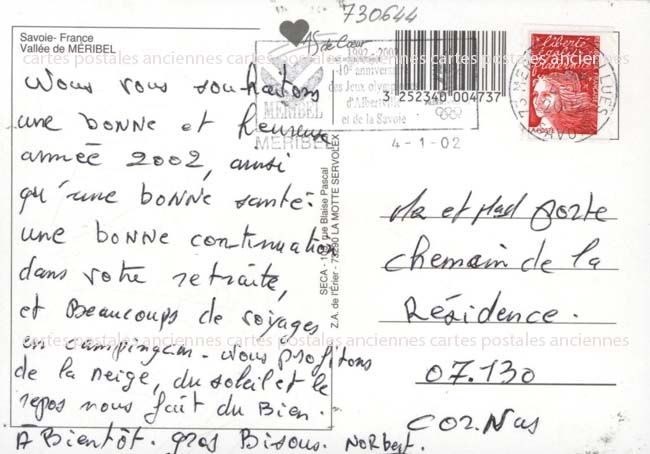 730644
Savoie- France
Vallée de MÉRIBEL
As de Cœur
1992-2002
10e anniversaire
des Jeux olym
d'Albertville
et de la Savoie
MERIBEL
MERIBEL
4-1-02
3 252340 004737
liberté
égalité
fraternité
LA POSTE
73 MERIBEL LES ALLUES
SAVOIE
cartes postales anciennes cartes postales anciennes cartes postales anciennes
Nous vous souhaitons
une bonne et heureuse
année 2002, ainsi
qu'une bonne santé.
une bonne continuation
dans votre retraite,
et Beaucoups de voyages
en campingcar. Nous profitons
de la neige, du soleil et le
repos nous fait du Bien.
A Bientôt. gros Bisous. Norbert.
SECA - 10 rue Blaise Pascal
Z.A. de l'Érier - 73290 LA MOTTE SERVOLEX
Mr et Mad Porte
Chemain de la
Résidence.
07.130
CORNas
cartes postales anciennes cartes postales anciennes cartes postales anciennes